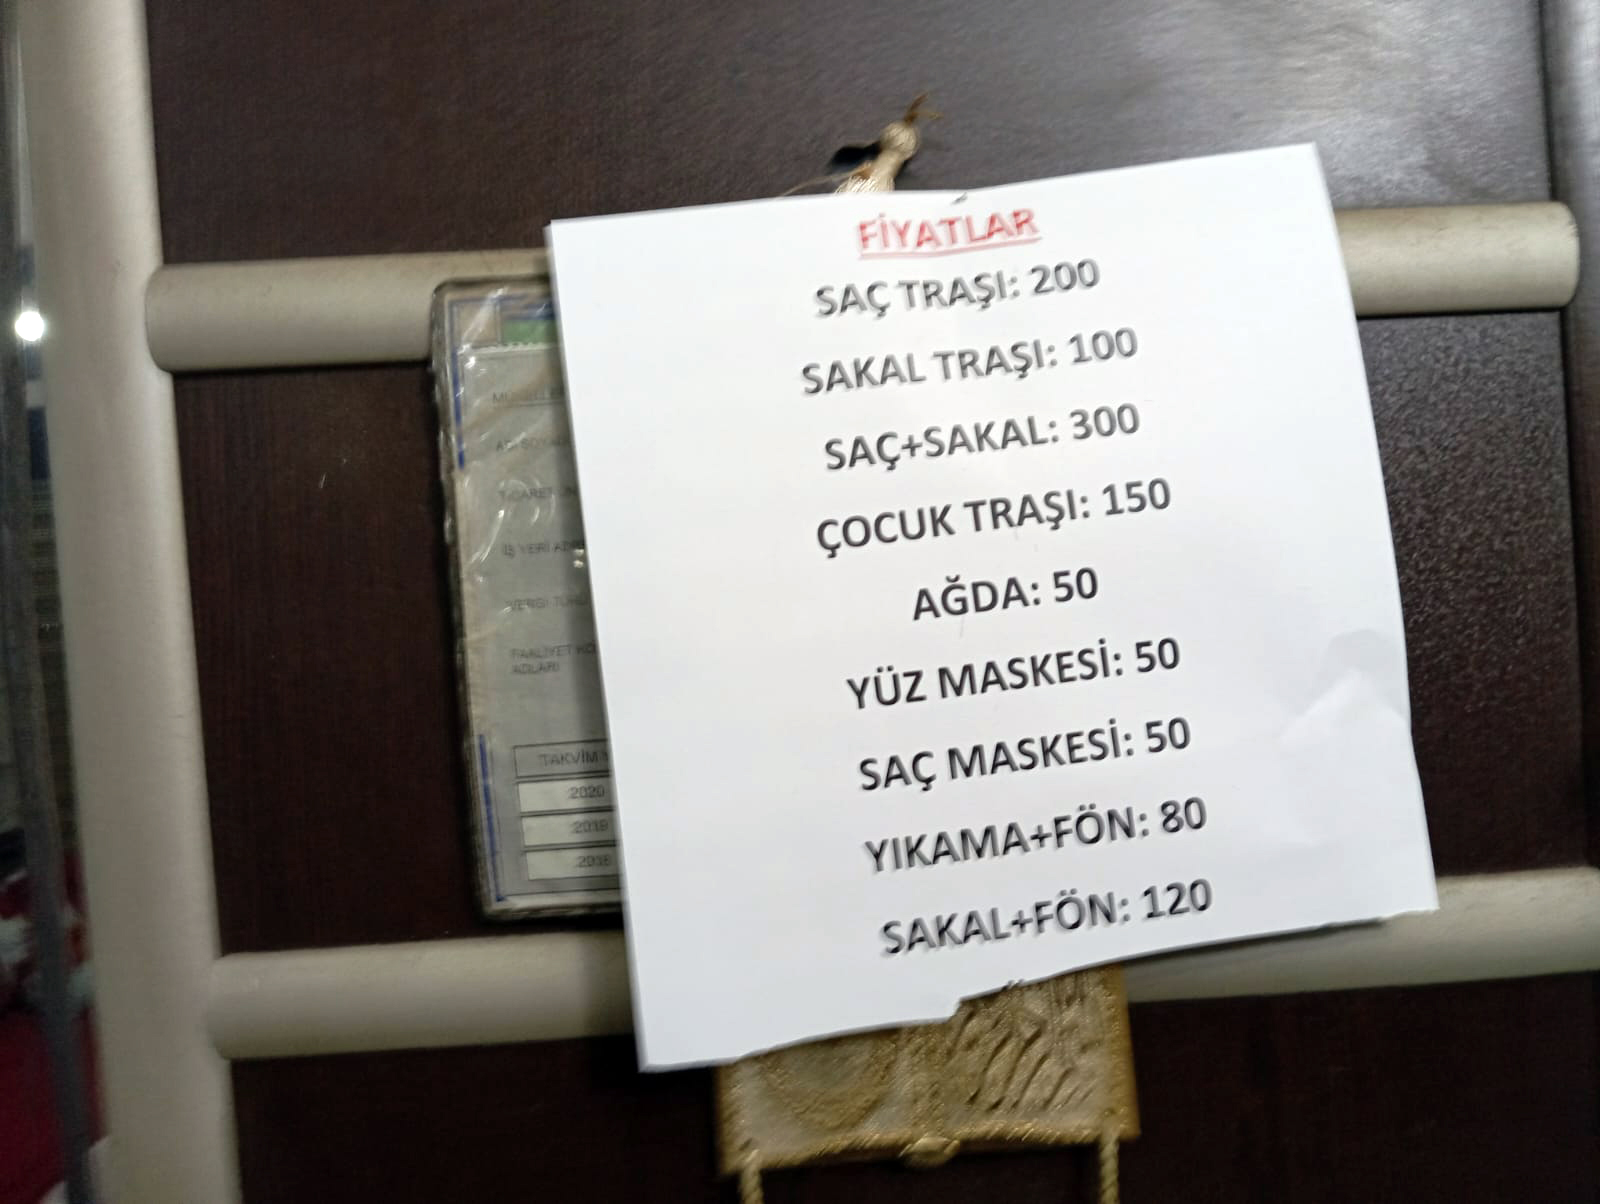 FİYATLAR
SAÇ TRAŞI: 200
SAKAL TRAŞI: 100
SAÇ+SAKAL: 300
ÇOCUK TRAŞI: 150
AĞDA: 50
YÜZ MASKESİ: 50
SAÇ MASKESİ: 50
YIKAMA+FÖN: 80
SAKAL+FÖN: 120
İŞ YERİ
VERGİ
FAALİYET
ADLARI
TAKVİM
2020
2019
2018